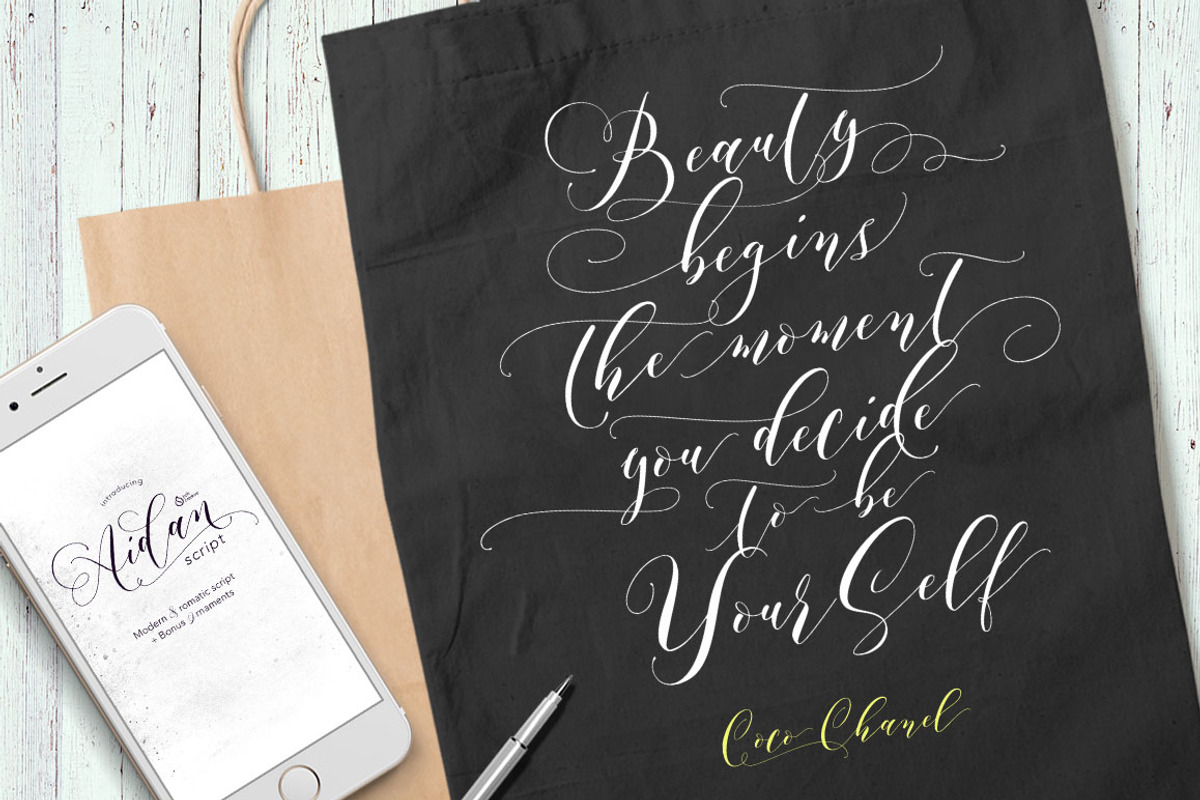 Beauty
begins
the moment
you decide
to be
Your Self
Coco Chanel
introducing
Aidan
script
Modern & romatic script
+ Bonus Ornaments